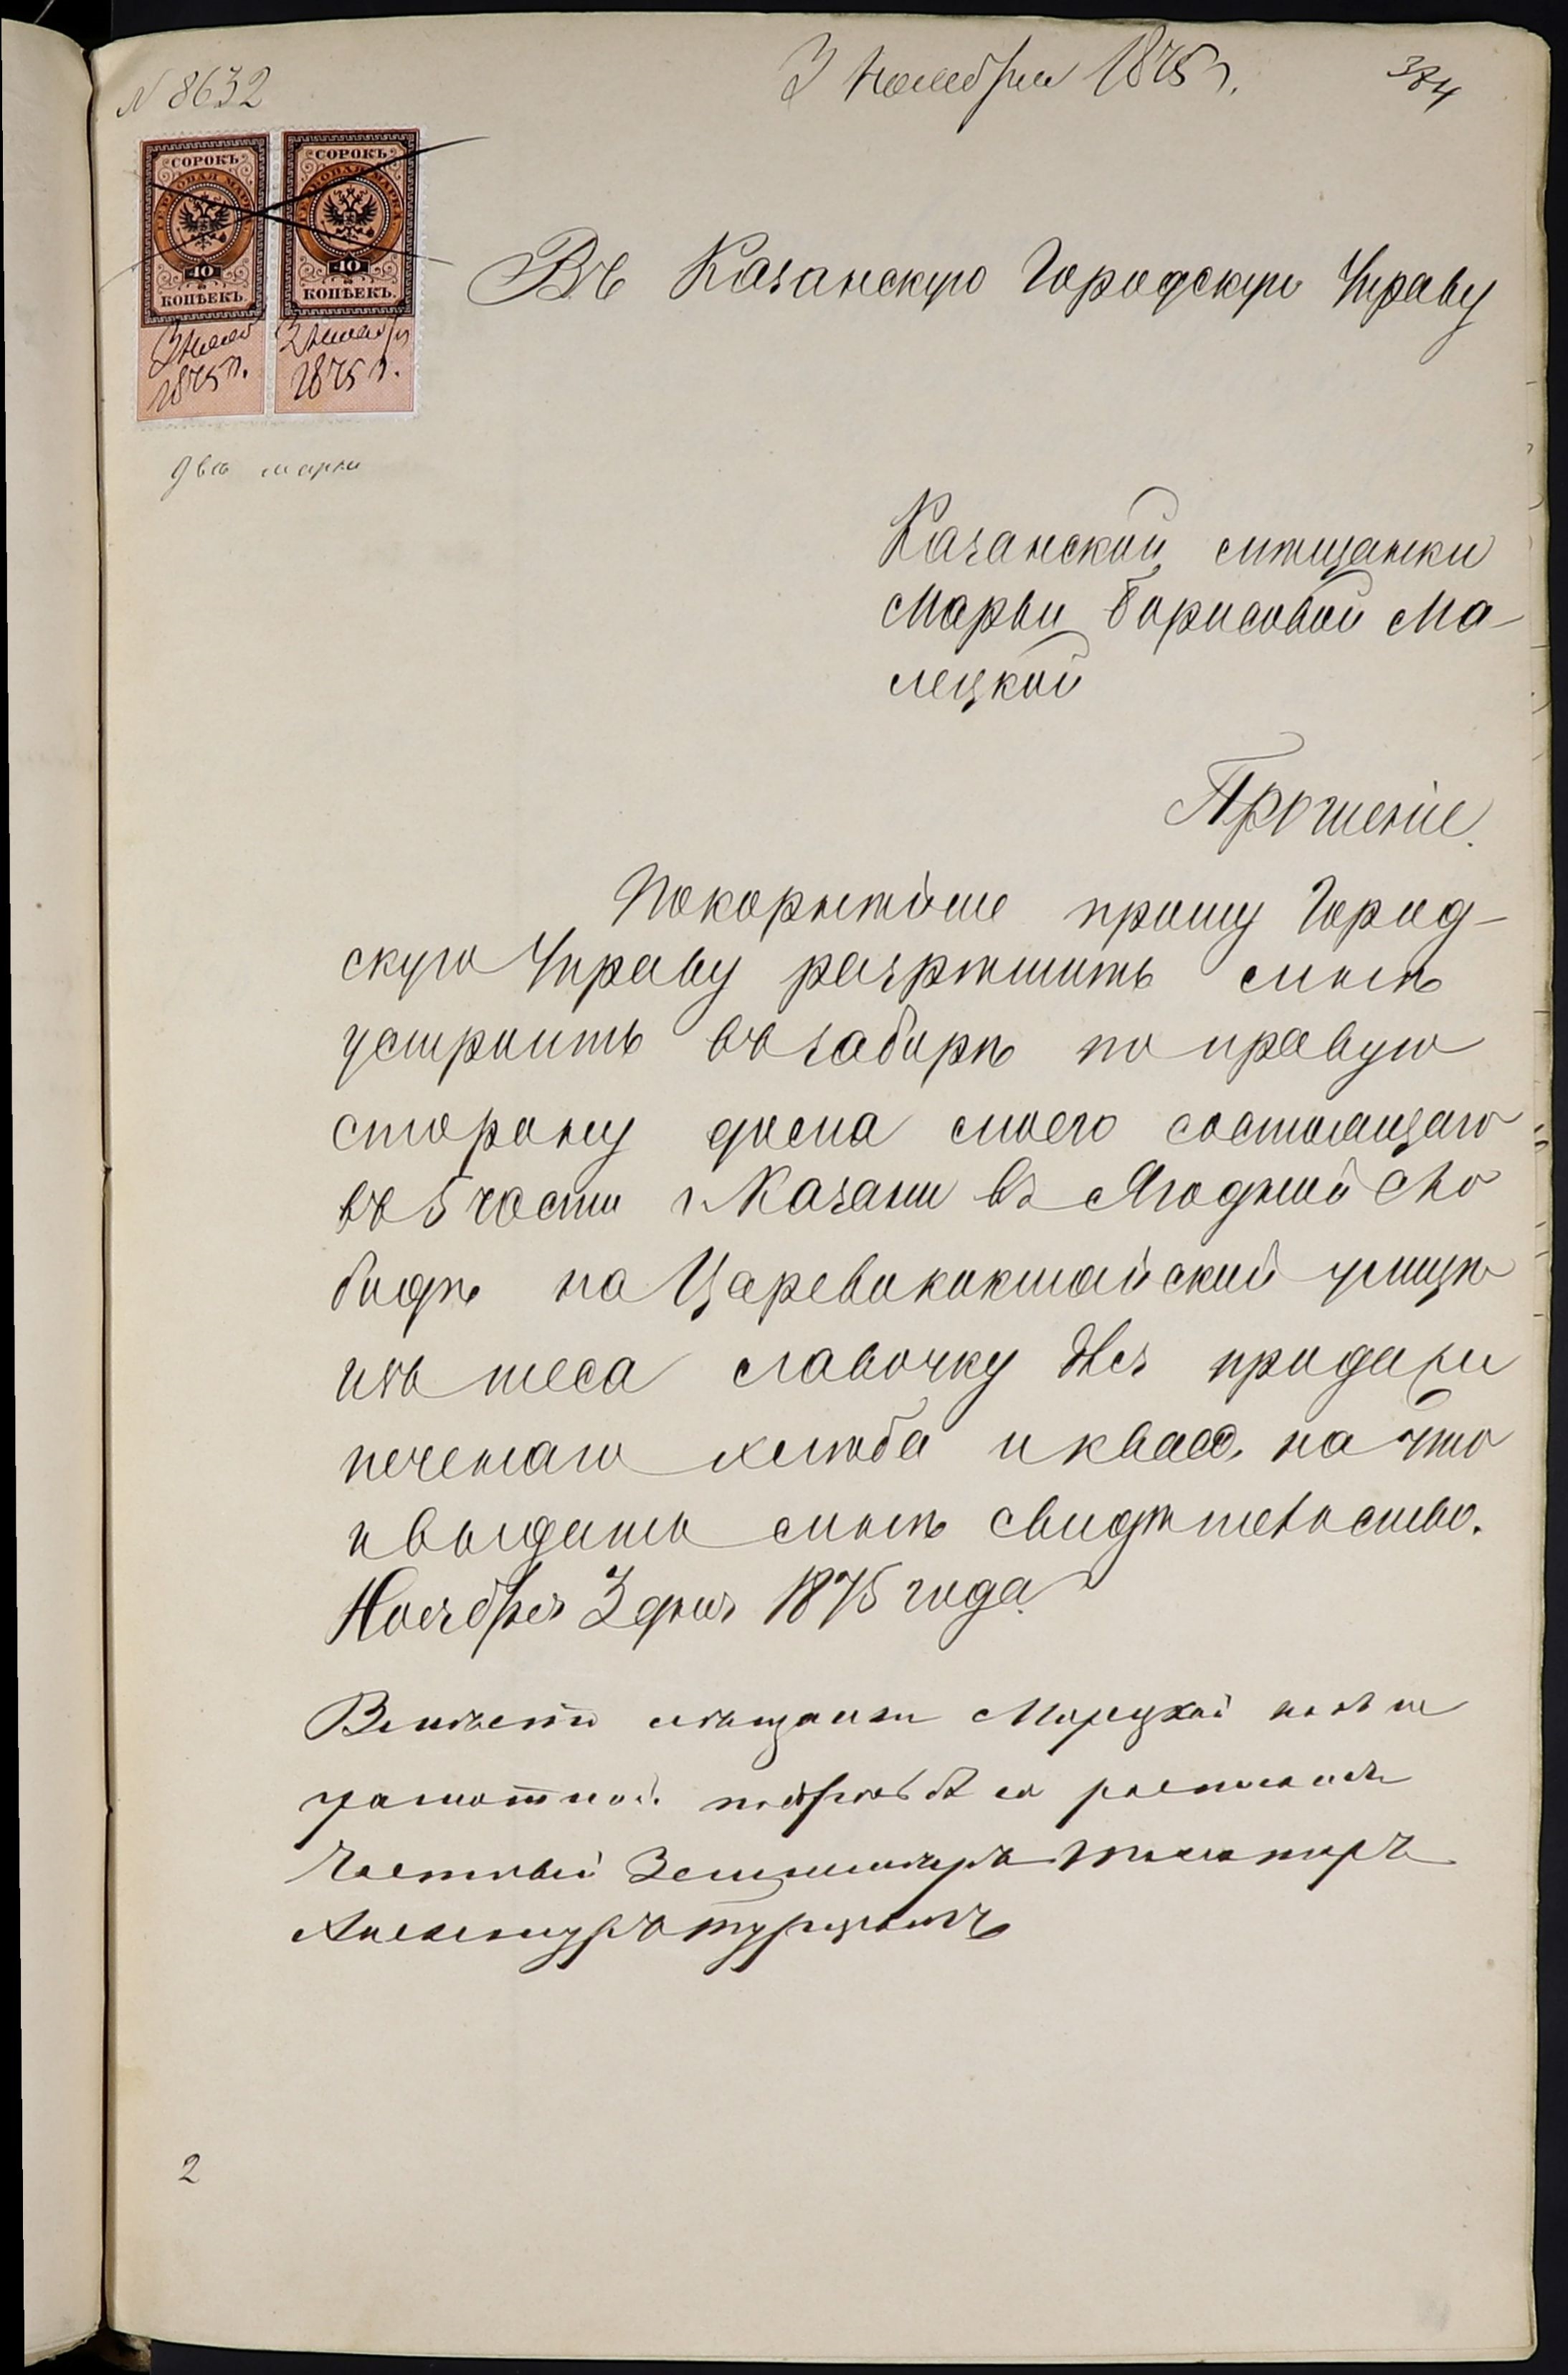 № 8632
3 Ноября 1875 г.
384
СОРОКЪ
ГЕРБОВАЯ МАРКА
40
КОПѢЕКЪ.
3 Нояб
1875 г.
СОРОКЪ
ГЕРБОВАЯ МАРКА
40
КОПѢЕКЪ.
3 Ноября
1875 г.
двѣ марки
Въ Казанскую Городскую Управу
Казанской мѣщанки
Марьи Борисовой Ма-
лецкой
Прошеніе.
Покорнѣйше прошу Город-
скую Управу разрѣшить мнѣ
устроить въ заборѣ по правую
сторону дома моего состоящаго
въ 5 части г. Казани въ Ягодной Сло
бодѣ на Царевококшайской улицѣ
изъ теса лавочку для продажи
печенаго хлѣба и квасо, на что
и выдать мнѣ свидѣтельство.
Ноября 3 дня 1875 года
Вмѣсто мѣщанки Малецкой не
грамотной по просьбѣ ея росписался
Частный Землемѣръ
Александръ
2